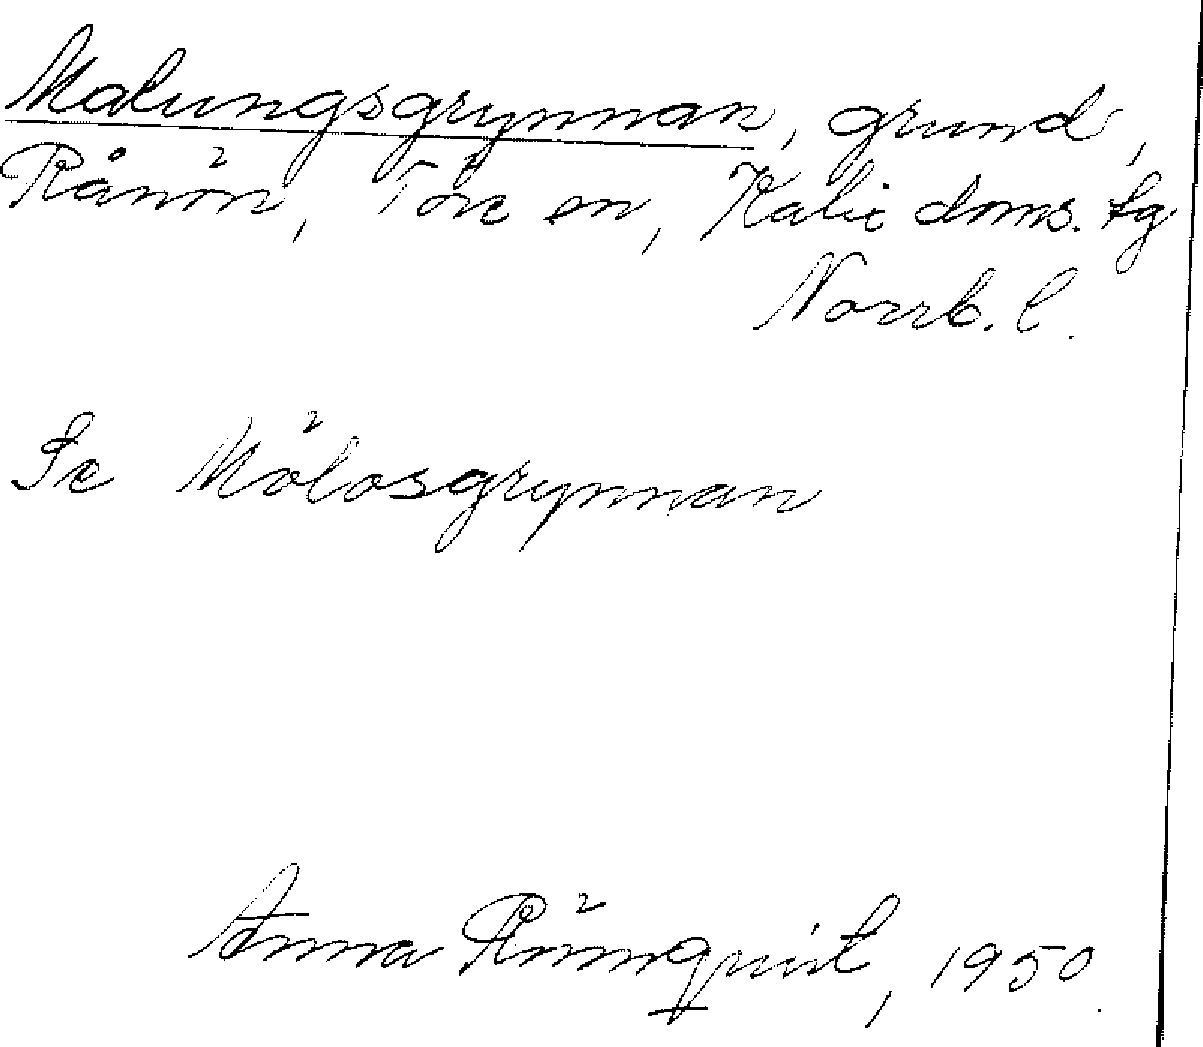 Malungsgrynnan, grund,
Rånön, Töre sn, Kalix doms. tg
Norrb. l.
Se Mölosgrynnan
Anna Rönnqvist, 1950.